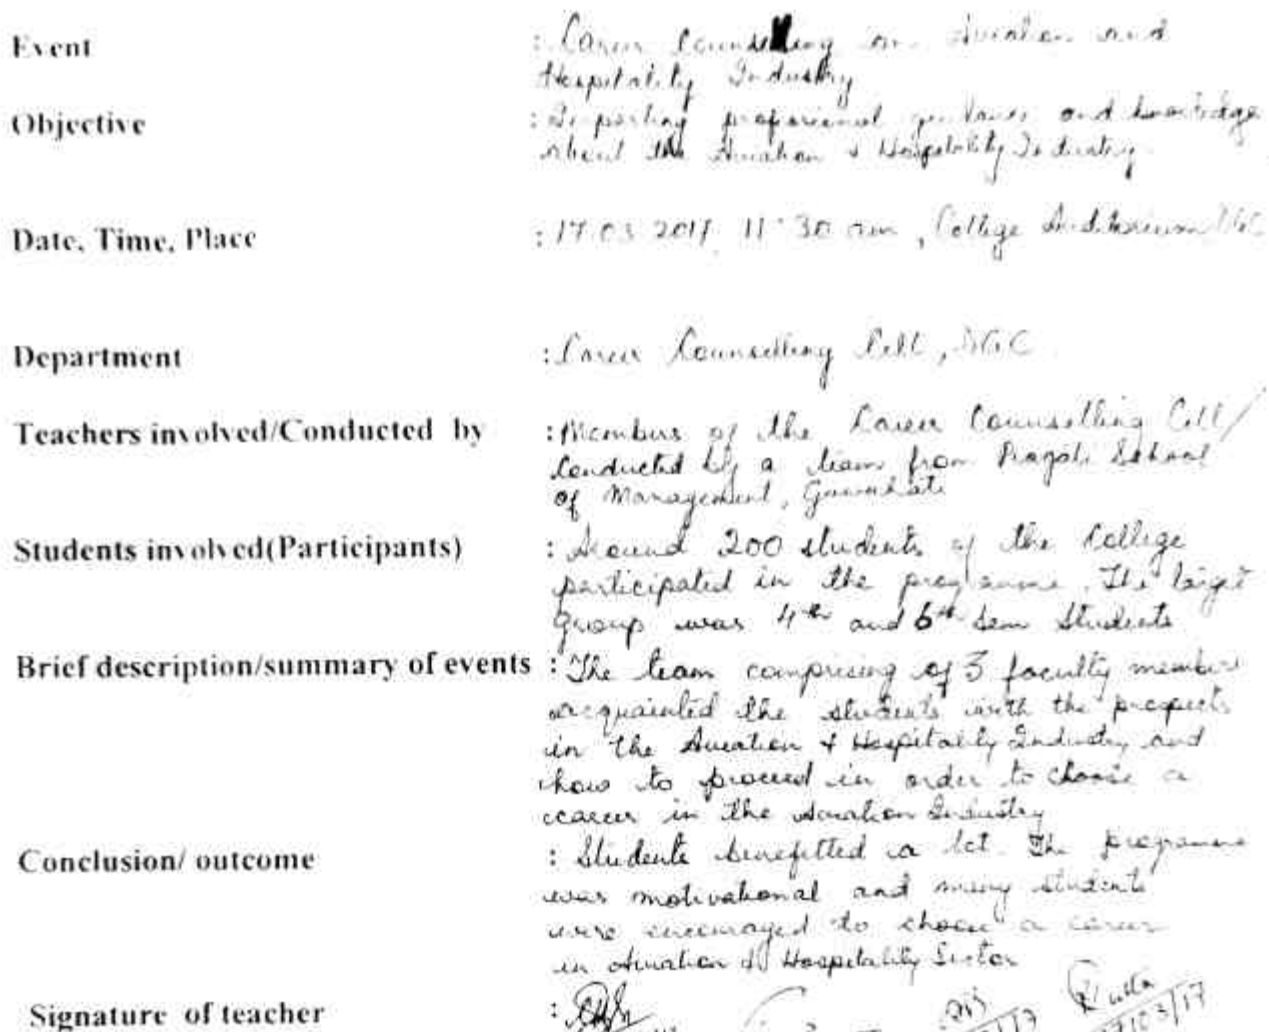 Event : Career Counselling on Aviation and
Hospitality Industry
Objective : Imparting professional guidance and knowledge
about the Aviation & Hospitality Industry.
Date, Time, Place : 17.03.2017, 11.30 am, College Auditorium
Department : Career Counselling Cell,
Teachers involved/Conducted by : Members of the Career Counselling Cell/
Conducted by a team from Pragati School
of Management, Guwahati
Students involved(Participants) : Around 200 students of the College
participated in the programme. The target
group was 4th and 6th Sem Students
Brief description/summary of events : The team comprising of 3 faculty members
acquainted the students with the prospects
in the Aviation & Hospitality Industry and
how to proceed in order to choose a
career in the Aviation Industry
Conclusion/ outcome : Students benefitted a lot. The programme
was motivational and many students
were encouraged to choose a career
in Aviation & Hospitality Sector
Signature of teacher :